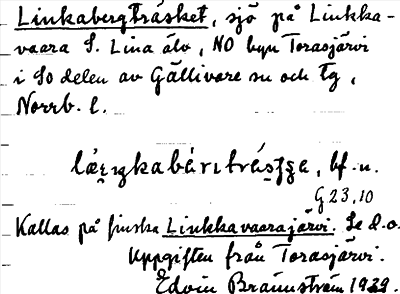 Linkabergträsket, sjö på Linkka-
vaara S. Lina älv, NO byn Torasjärvi
i SO delen av Gällivare sn och tg,
Norrb. l.
bf. u.
G 23,10
Kallas på finska Linkkavaarajärvi. Se d.o.
Uppgiften från Torasjärvi.
Edvin Brännström 1939.